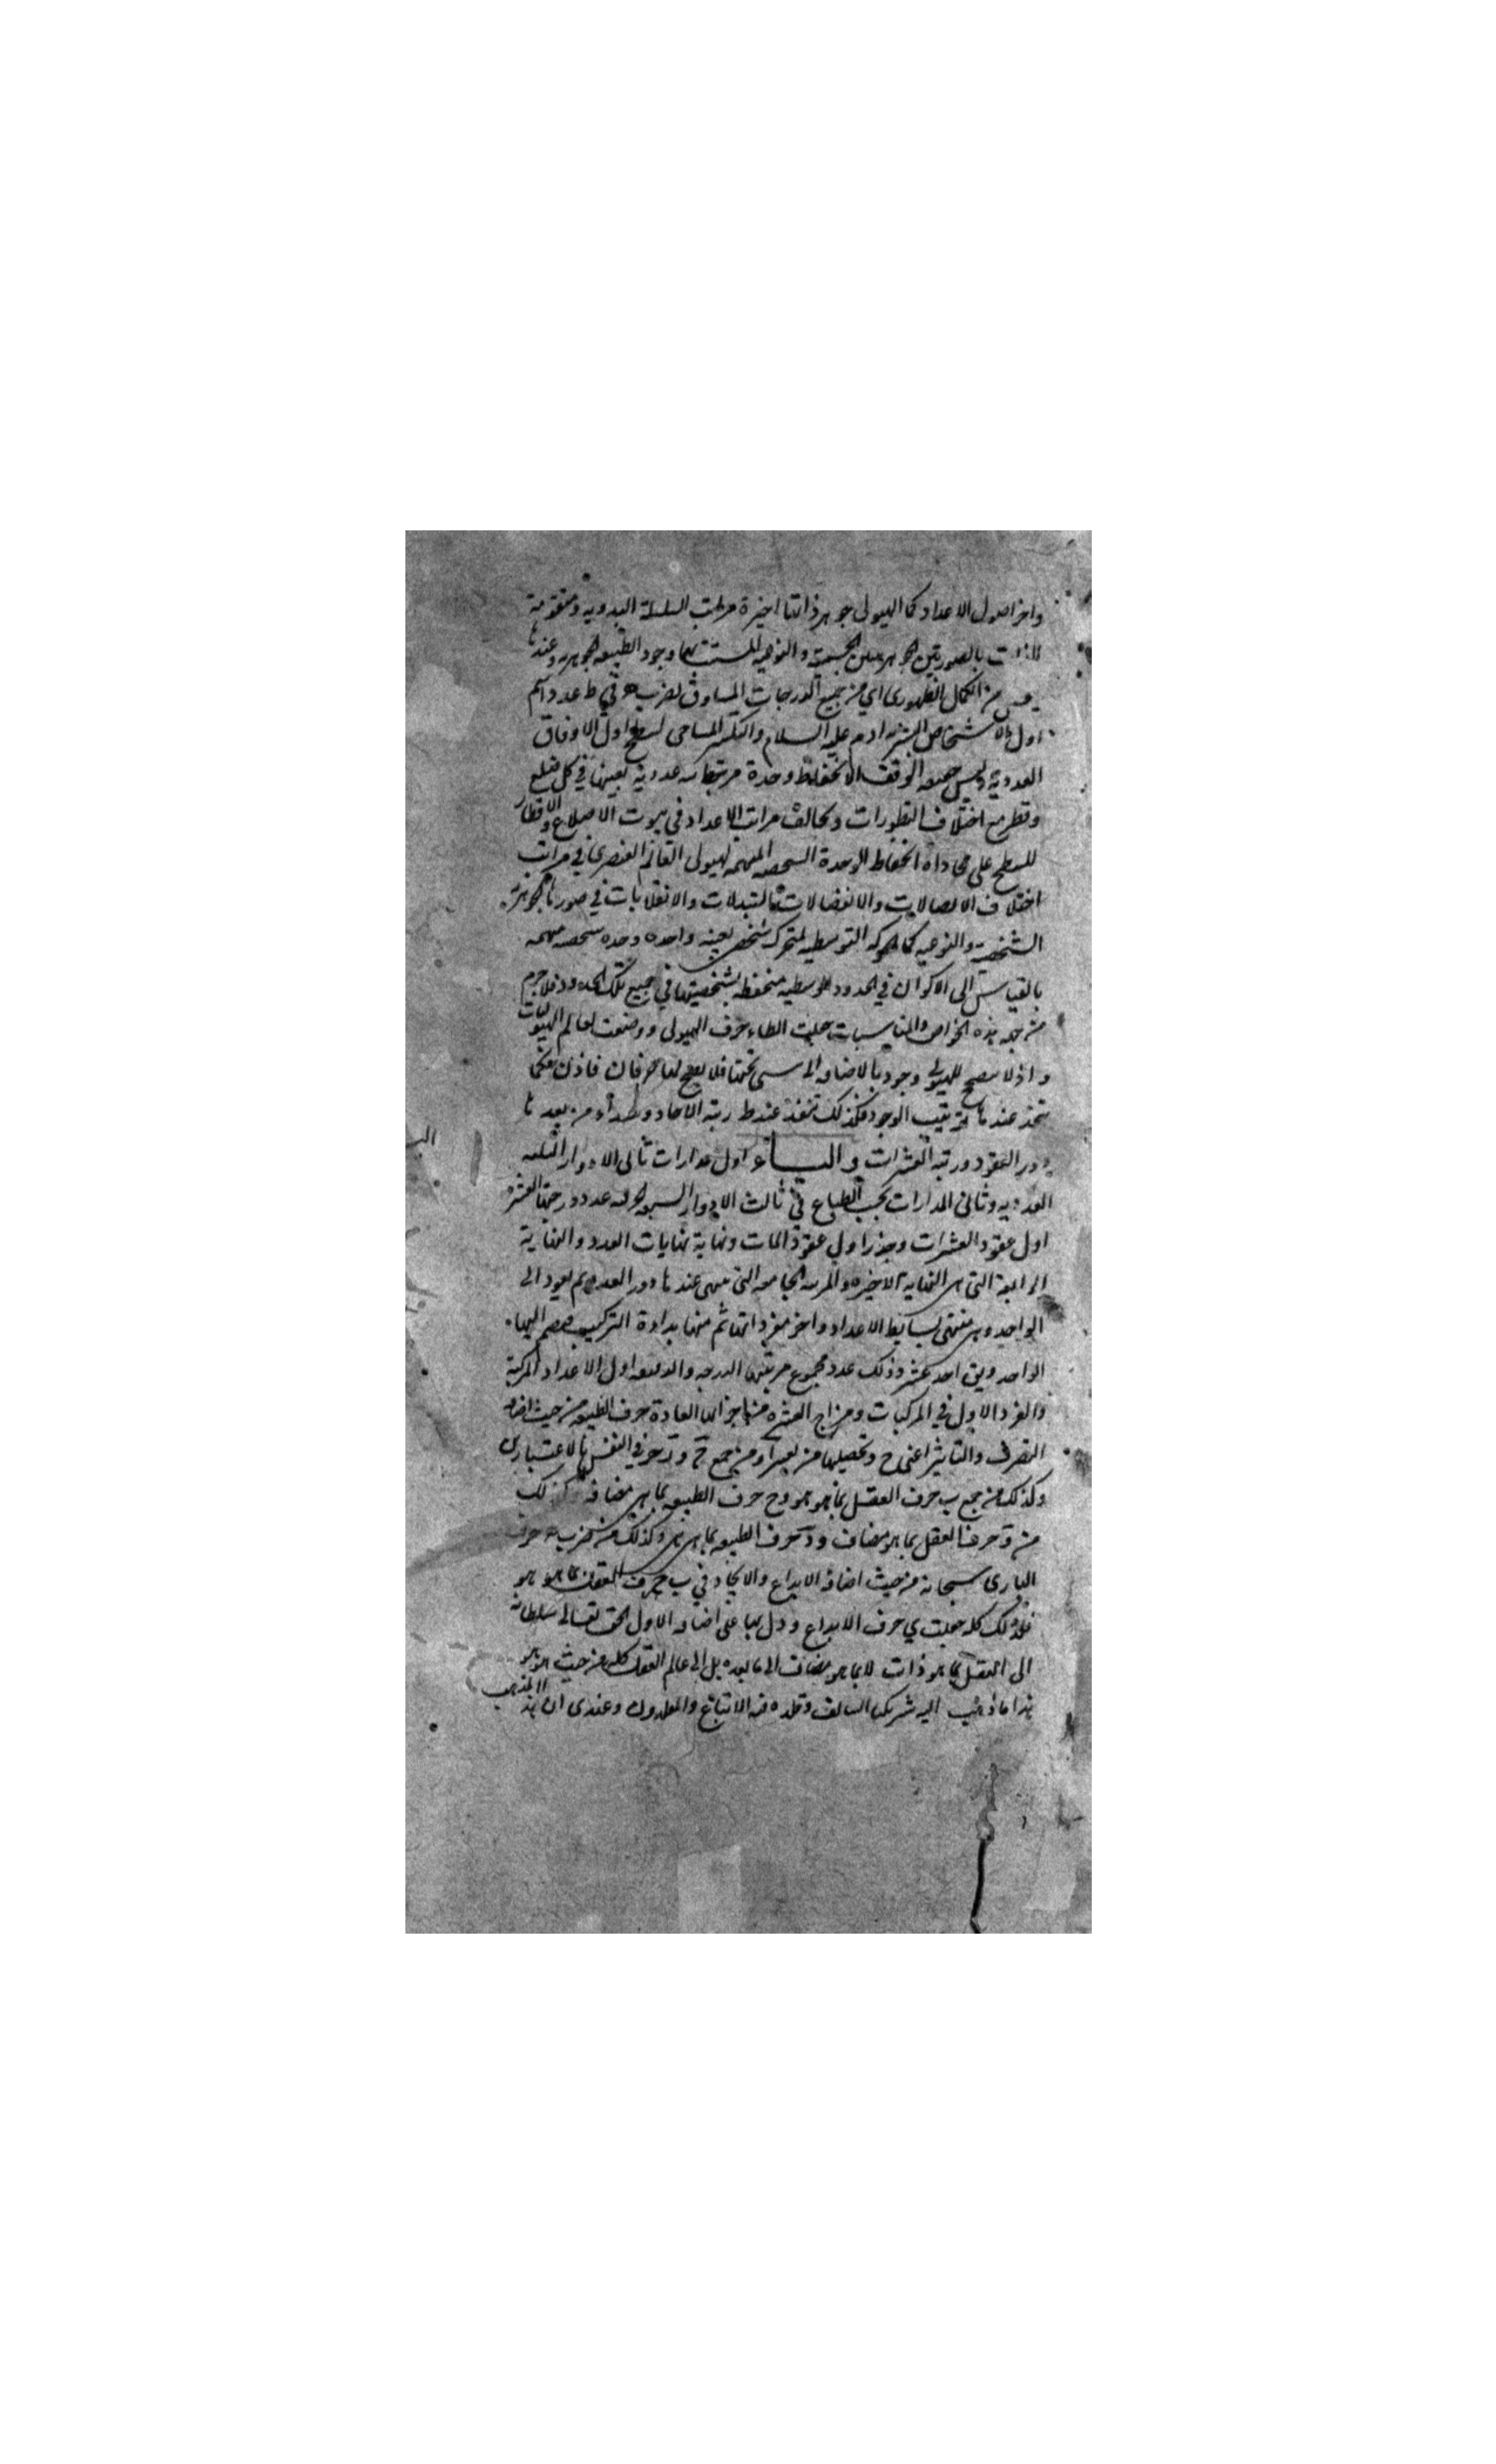 واخر اصول الاعداد كما الهيولى جوهر ذاتها اخيرة مراتب السلسلة البدوية ومتقومة
بالصورتين الجوهريتين الجسمية والنوعية المستتب بهما وجود الطبيعة الجوهرية وعندها
من الكمال الظهورى اي من جميع الدرجات المساوق لضرب ه في ط عدد اسم
اول الاشخاص البشرية ادم عليه السلام والتكسير المساحى لسطح اول الاوفاق
العددية وليس جمعه الوقف الا انحفاظ وحدة مرتبة عددية بعينها في كل ضلع
وقطر مع اختلاف التطورات وتخالف مراتب الاعداد في بيوت الاضلاع والاقطار
للسطح على محاذاة انحفاظ الوحدة الشخصية المبهمة لهيولى العالم العنصرى في مراتب
اختلاف الاتصالات والانفصالات والتبدلات والانقلابات في صورها الجوهرية
الشخصية والنوعية كما الحركة التوسطية لمتحرك شخصى بعينه واحدة وحدة شخصية مبهمة
بالقياس الى الاكوان في الحدود الوسطية منحفظة بشخصيتها في جميع تلك الحدود فلا جرم
من جهة هذه الخواص والمناسبات جعلت الطاء حرف الهيولى ووضعت لعالم الهيوليات
واذ لا يصح للهيولى وجود بالاضافة الى شىء تحتها فلا يصح لها حرفان فاذن كما
عندها ترتيب الوجود فكذلك تنفد عند ط رتبة الاحاد و من بعدها
دور العقود ورتبة العشرات والياء اول مدارات ثانى الادوار الثلثة
العددية وثانى المدارات بحسب الطباع في ثالث الادوار السبعة الحرفية عدد درجتها العشرة
اول عقود العشرات وجذر اول عقود المات ونهاية نهايات العدد والنهاية
الرابعة التى هى النهاية الاخيرة والمرتبة الجامعة التى ينتهى عندها دور العدد ثم يعود الى
الواحد وهى منتهى بسائط الاعداد واخر مفرداتها ثم منها بداءة التركيب فيضم اليها
الواحد ويق احد عشر وذلك عدد مجموع مرتبتى الدرجة والدقيقة اول الاعداد المركبة
والفرد الاول في المركبات ومزاج العشرة من اجزائها العادة حرف الطبيعة من حيث اضافة
التصرف والتاثير اعنى ح وتحصيلها من جمع ج و ز حرفي النفس بالاعتبارين
وكذلك من جمع ب حرف العقل بما هو هو و ح حرف الطبيعة بما هى مضافة وكذلك
من و حرف العقل بما هو مضاف و د حرف الطبيعة بما هى هى وكذلك من ضرب ه حرف
البارى سبحانه من حيث اضافة الابداع والايجاد في ب حرف العقل بما هو هو
فلذلك كله جعلت ي حرف الابداع ودل بها على اضافة الاول الحق تعالى سلطانه
الى العقل بما هو ذات لا بما هو مضاف الى ما بعده بل الى عالم العقل كله من حيث هو هو
هذا ما ذهب اليه شريكنا السالف وقلده فيه الاتباع والمقلدون وعندى ان هذا المذهب